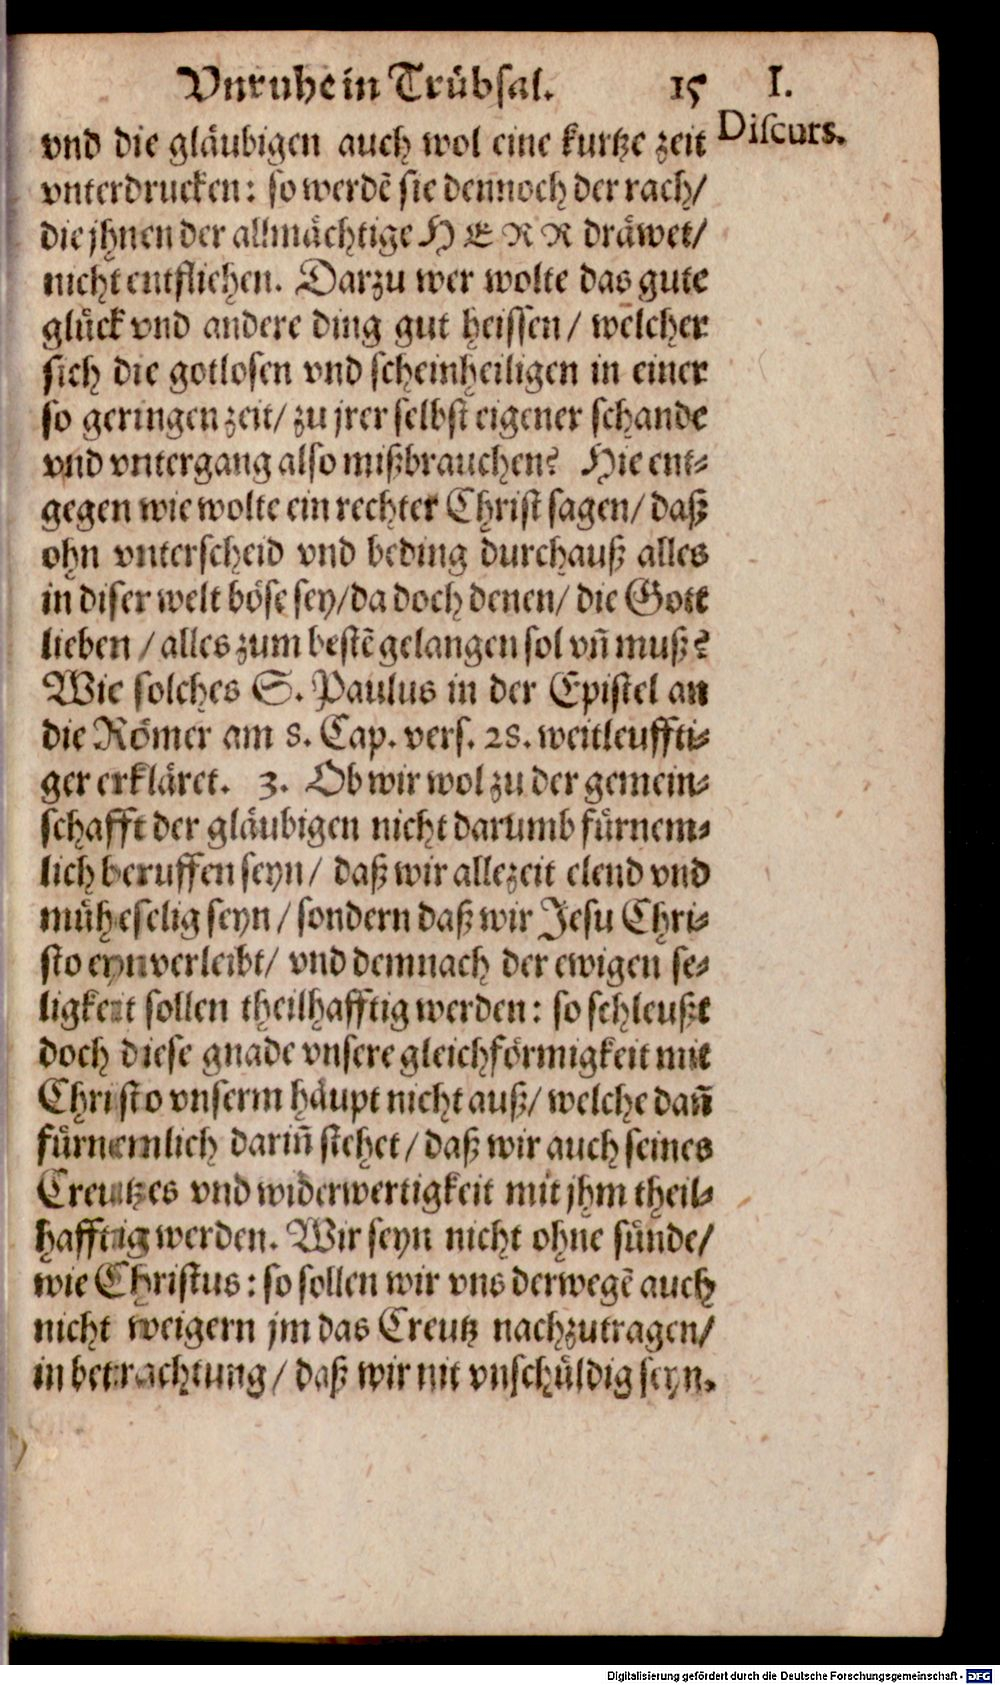 Vnruhe in Trübsal. 15 I.
Discurs.
vnd die gläubigen auch wol eine kurtze zeit
vnterdrucken: so werdē sie dennoch der rach/
die jhnen der allmächtige HERR dräwet/
nicht entfliehen. Darzu wer wolte das gute
glück vnd andere ding gut heissen/ welcher
sich die gotlosen vnd scheinheiligen in einer
so geringen zeit/ zu jrer selbst eigener schande
vnd vntergang also mißbrauchen? Hie ent⸗
gegen wie wolte ein rechter Christ sagen/ daß
ohn vnterscheid vnd beding durchauß alles
in diser welt böse sey/ da doch denen/ die Gott
lieben / alles zum bestē gelangen sol vn̄ muß?
Wie solches S. Paulus in der Epistel an
die Römer am 8. Cap. vers. 28. weitleuffti⸗
ger erkläret. 3. Ob wir wol zu der gemein⸗
schafft der gläubigen nicht darumb fürnem⸗
lich beruffen seyn/ daß wir allezeit elend vnd
müheselig seyn/ sondern daß wir Jesu Chri⸗
sto eynverleibt/ vnd demnach der ewigen se⸗
ligkeit sollen theilhafftig werden: so schleußt
doch diese gnade vnsere gleichförmigkeit mit
Christo vnserm häupt nicht auß/ welche dan̄
fürnemlich darin̄ stehet/ daß wir auch seines
Creutzes vnd widerwertigkeit mit jhm theil⸗
hafftig werden. Wir seyn nicht ohne sünde/
wie Christus: so sollen wir vns derwegē auch
nicht weigern jm das Creutz nachzutragen/
in betrachtung/ daß wir nit vnschüldig seyn.
Digitalisierung gefördert durch die Deutsche Forschungsgemeinschaft - DFG